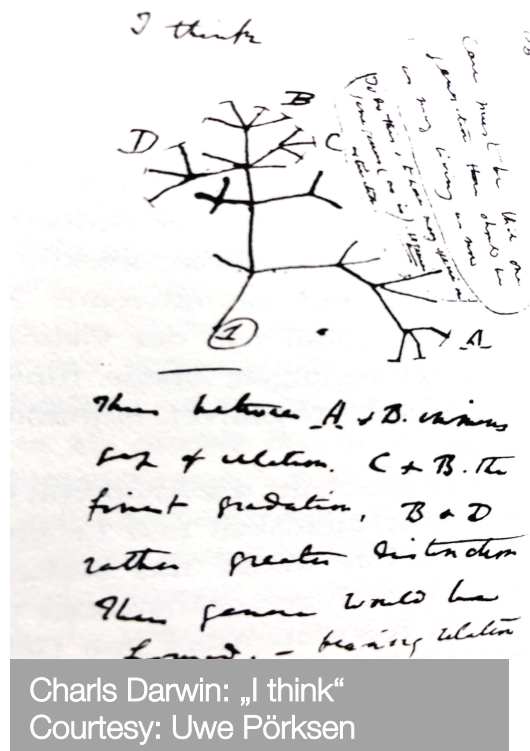 I think
Case must be that one
generation then should be
as many living as now
To do this & to have many species in
same genus (as is) requires
extinction
B
D
C
1
A
Thus between A & B. immense
gap of relation. C & B. the
finest gradation, B & D
rather greater distinction
Thus genera would be
formed. — bearing relation
Charls Darwin: „I think“
Courtesy: Uwe Pörksen